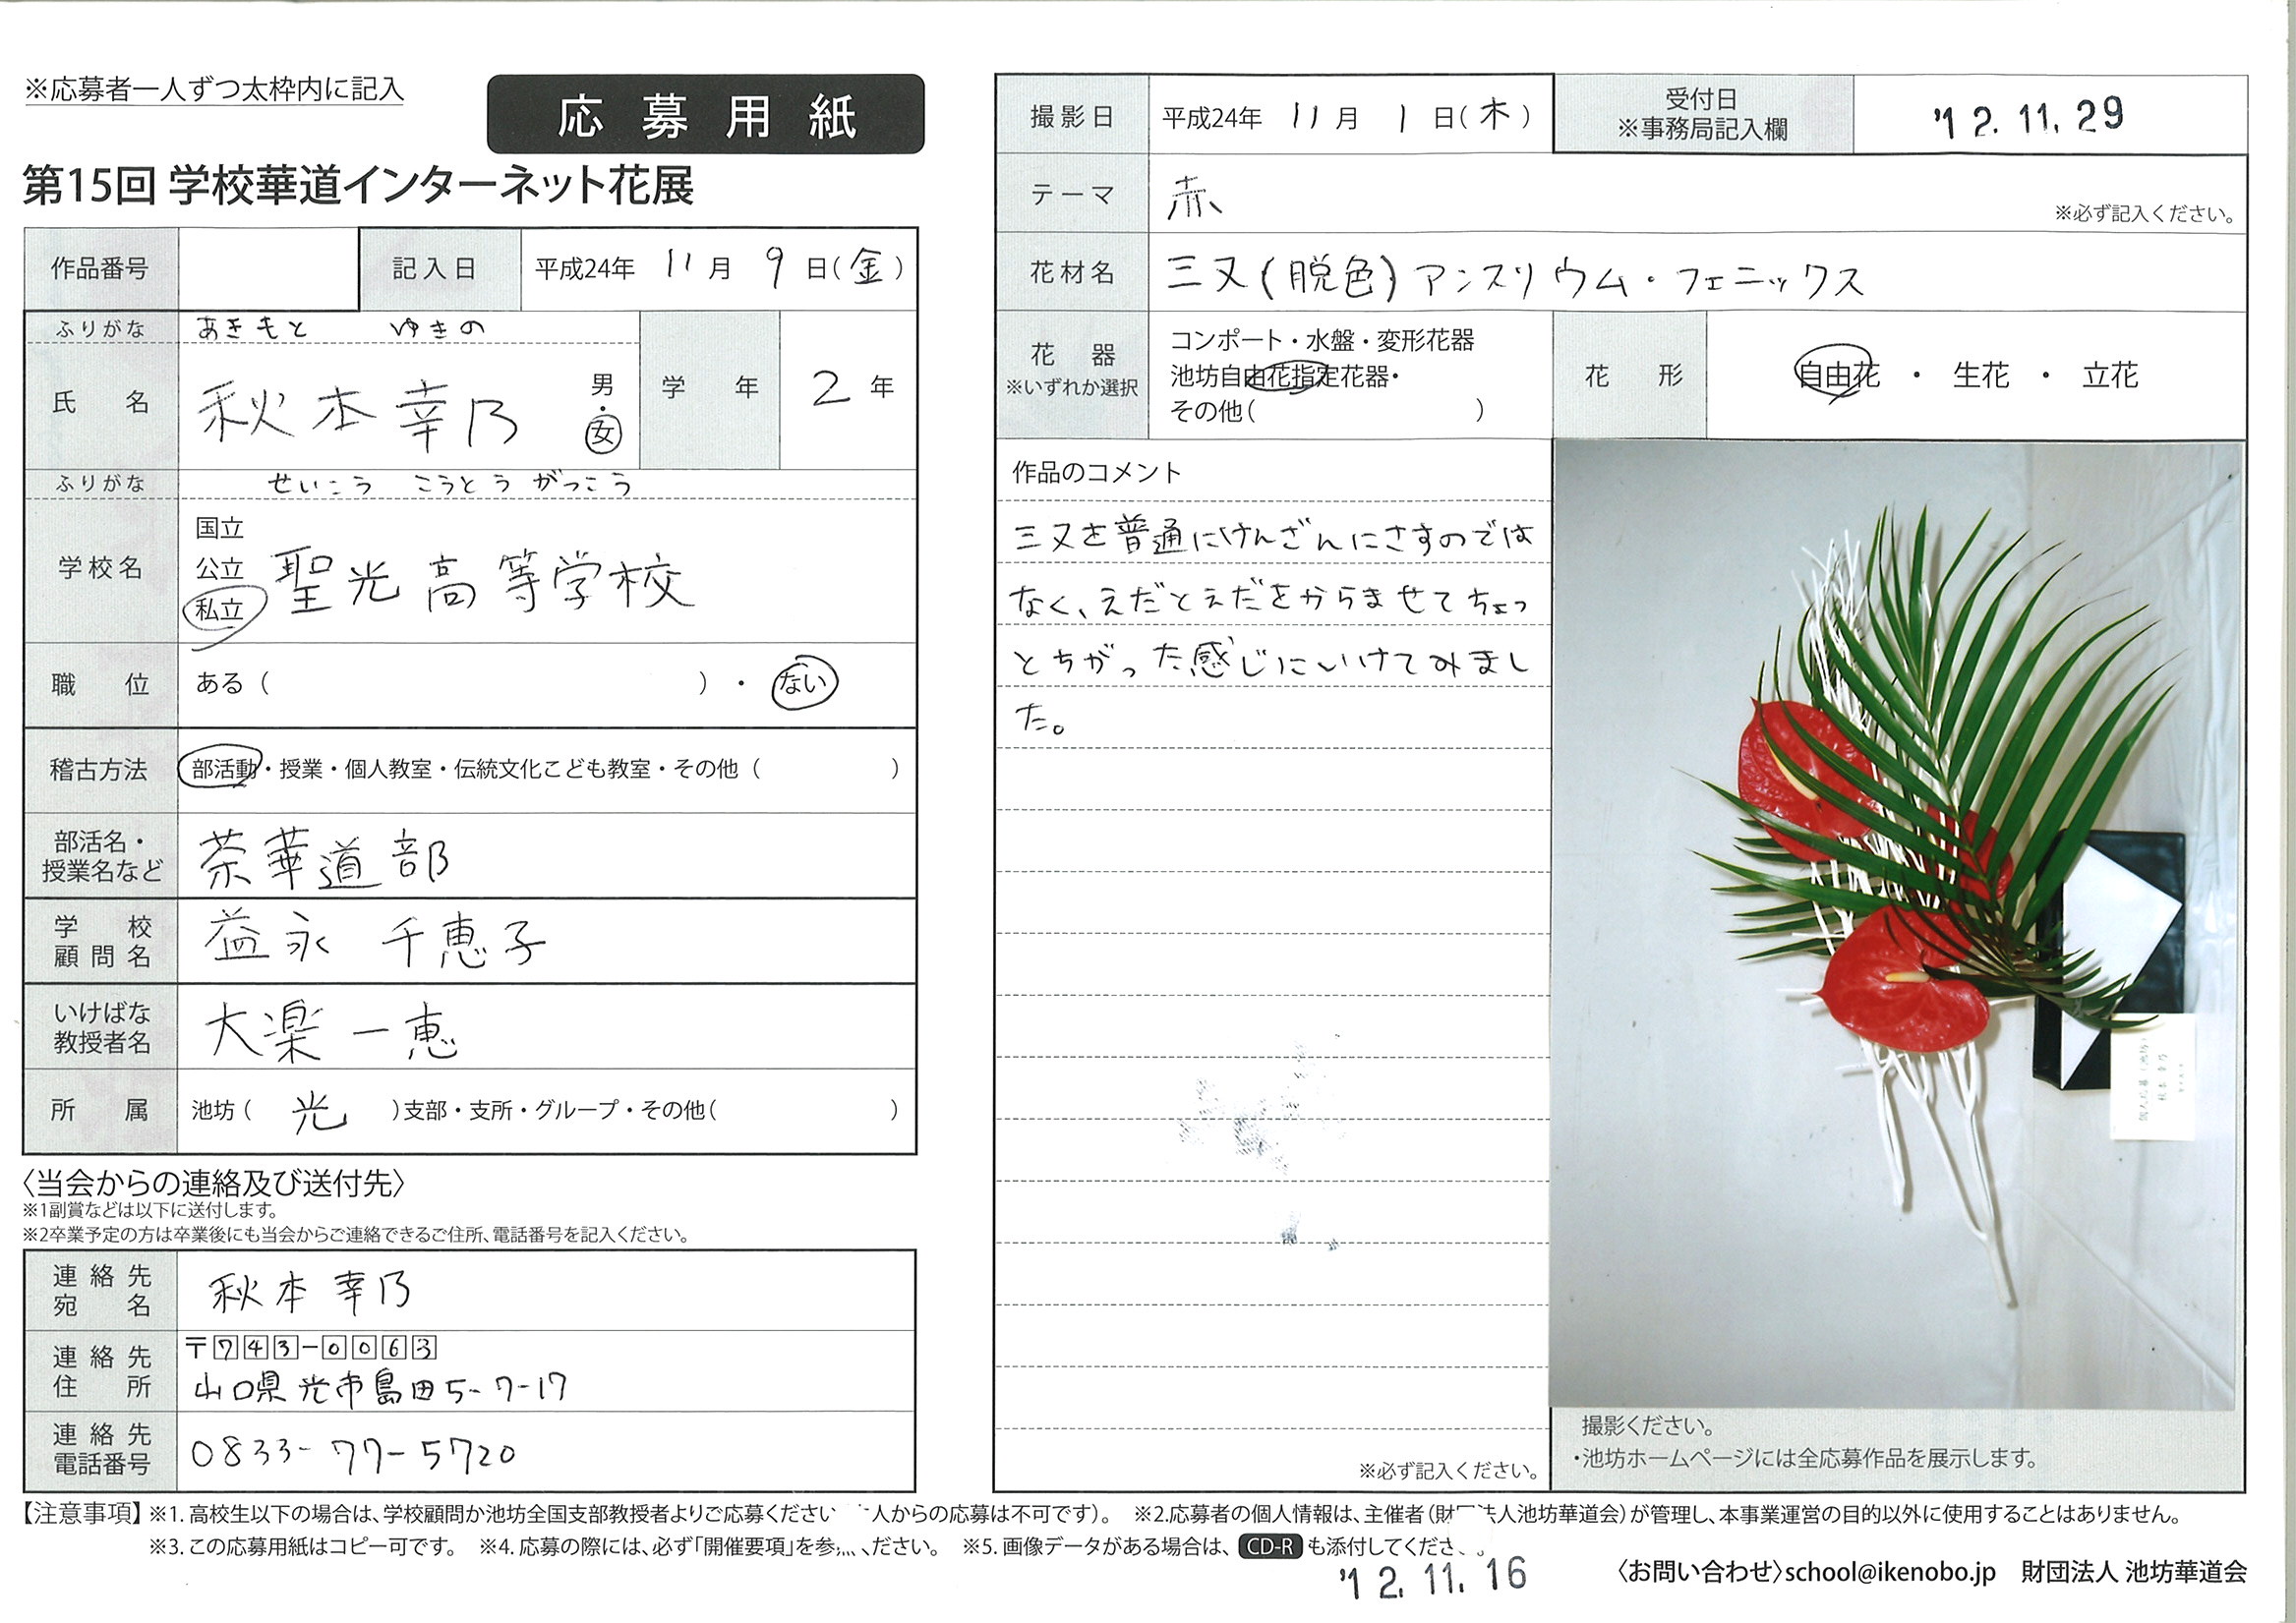 ※応募者一人ずつ太枠内に記入
応募用紙
第15回 学校華道インターネット花展
作品番号 記入日 平成24年 11月 9日(金)
ふりがな あきもと ゆきの
氏名 秋本幸乃 男・女 学年 2年
ふりがな せいこう こうとうがっこう
学校名 国立 公立 私立 聖光高等学校
職位 ある( )・ない
稽古方法 部活動・授業・個人教室・伝統文化こども教室・その他( )
部活名・授業名など 茶華道部
学校顧問名 益永 千恵子
いけばな教授者名 大楽一恵
所属 池坊( 光 )支部・支所・グループ・その他( )
〈当会からの連絡及び送付先〉
※1副賞などは以下に送付します。
※2卒業予定の方は卒業後にも当会からご連絡できるご住所、電話番号を記入ください。
連絡先宛名 秋本幸乃
連絡先住所 〒743-0063
山口県光市島田5-7-17
連絡先電話番号 0833-77-5720
撮影日 平成24年 11月 1日(木) 受付日 ※事務局記入欄 '12.11.29
テーマ 赤 ※必ず記入ください。
花材名 三又(脱色)アンスリウム・フェニックス
花器 ※いずれか選択 コンポート・水盤・変形花器
池坊自由花指定花器・
その他( )
花形 自由花 ・ 生花 ・ 立花
作品のコメント
三又を普通にけんざんにさすのでは
なく、えだとえだをからませてちょっ
とちがった感じにいけてみまし
た。
※必ず記入ください。
秋本 幸乃
撮影ください。
・池坊ホームページには全応募作品を展示します。
【注意事項】※1.高校生以下の場合は、学校顧問か池坊全国支部教授者よりご応募ください 人からの応募は不可です)。 ※2.応募者の個人情報は、主催者(財 法人池坊華道会)が管理し、本事業運営の目的以外に使用することはありません。
※3.この応募用紙はコピー可です。 ※4.応募の際には、必ず「開催要項」を参 ください。 ※5.画像データがある場合は、CD-Rも添付してくださ
'12.11.16
〈お問い合わせ〉school@ikenobo.jp 財団法人 池坊華道会